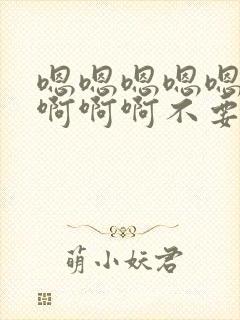 嗯嗯嗯嗯嗯
啊啊啊不要
萌小妖君